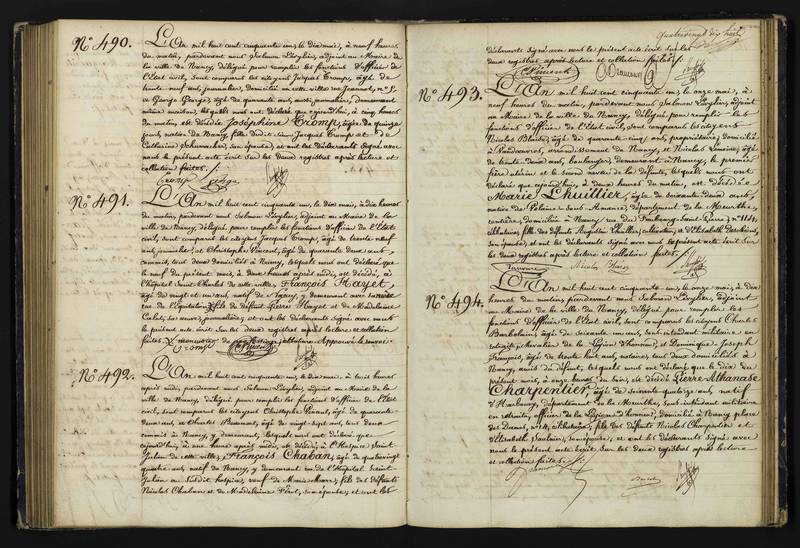 Quatre vingt dix huit
N.º 490.
L'An mil huit cent cinquante un, le dix mai, à neuf heures
du matin, pardevant nous Salomon Lévylier, adjoint au Maire de
la ville de Nancy, délégué pour remplir les fonctions d'officier de
l'Etat civil, sont comparus les citoyens Jacques Cromp, âgé de
trente neuf ans, journalier, domicilié en cette ville rue Jeannot, nº 5,
George George, âgé de quarante ans, aussi journalier, demeurant
même maison, lesquels nous ont déclaré que ajourd'hui, à cinq heures
du matin, est décédée Joséphine Cromp, âgée de quinze
jours, native de Nancy, fille dudit Jacques Cromp et de
Catherine Schumacher, son épouse, et ont les déclarants signé avec
nous le présent acte écrit sur les deux registres après lecture et
collation faites. /:
Cromp George
N.º 491.
L'An mil huit cent cinquante un, le dix mai, à dix heures
du matin, pardevant nous Salomon Lévylier, adjoint au Maire de la
ville de Nancy, délégué pour remplir les fonctions d'officier de l'Etat
civil, sont comparus les citoyens Jacques Cromp, âgé de trente neuf
ans, journalier, et Christophe Vincent, âgé de quarante deux ans
commis, tous deux domiciliés à Nancy, lesquels nous ont déclaré que
le neuf du présent mois, à deux heures après midi, est décédé, à
l'hôpital Saint Charles de cette ville, François Hayet,
âgé de vingt et un ans, natif de Nancy, y demeurant avec sa mère
rue de l'Equitation, fils de défunt Pierre Hayet et de Madeleine
Calot, sa veuve, journalière, et ont les déclarants signé avec nous
le présent acte écrit sur les deux registres après lecture et collation
faites.
Cromp Vincent
N.º 492.
L'An mil huit cent cinquante un, le dix mai, à trois heures
après midi, pardevant nous Salomon Lévylier, adjoint au Maire de la
ville de Nancy, délégué pour remplir les fonctions d'officier de l'Etat
civil, sont comparus les citoyens Christophe Vincent, âgé de quarante-
deux ans, et Charles Beaumont, âgé de vingt-sept ans, tous deux
commis à Nancy, y demeurant, lesquels nous ont déclaré que
aujourd'hui, à une heure après midi, est décédé, à l'Hospice Saint
Julien de cette ville, François Chaban, âgé de quatrevingt
quatre ans, natif de Nancy, y demeurant en de l'Hôpital Saint-
Julien au susdit hospice, veuf de Marie Marc, fils des défunts
Nicolas Chaban et de Madeleine Féret, son épouse, et ont les
déclarants signé avec nous le présent acte écrit sur les
deux registres après lecture et collation faites. /:
C Vincent C Beaumont
N.º 493.
L'An mil huit cent cinquante un, le onze mai, à
neuf heures du matin, pardevant nous Salomon Lévylier, adjoint
au Maire de la ville de Nancy, délégué pour remplir les
fonctions d'officier de l'Etat civil, sont comparus les citoyens
Nicolas Blaise, âgé de quarante cinq ans, propriétaire, domicilié
à Vandoeuvre, arrondissement de Nancy, et Nicolas
de trente deux ans, boulanger, demeurant à Nancy, le premier
frère utérin et le second neveu de la défunte, lesquels nous ont
déclaré que ajourd'hui, à deux heures du matin, est décédée
Marie Lhuillier, âgée de soixante deux ans,
native de Pulnois Saint Maurice, département de la Meurthe,
rentière, domiciliée à Nancy rue du Faubourg Saint Pierre, nº 114,
célibataire, fille des défunts Augustin Lhuillier, cultivateur, et d'Elisabeth
son épouse; et ont les déclarants signé avec nous le présent acte écrit sur
les deux registres après lecture et collation faites. /:
Nicolas Blaise
N.º 494.
L'An mil huit cent cinquante un, le onze mai, à dix
heures du matin, pardevant nous Salomon Lévylier, adjoint
au Maire de la ville de Nancy, délégué pour remplir les
fonctions d'officier de l'Etat civil, sont comparus les citoyens Charles
âgé de soixante un ans, sous intendant militaire en
retraite, chevalier de la Légion d'honneur, et Dominique Joseph
François, âgé de trente huit ans, notaire, tous deux domiciliés à
Nancy, amis du défunt, lesquels nous ont déclaré que le dix du
présent mois, à onze heures du soir, est décédé Pierre Athanase
Charpentier, âgé de soixante-quatorze ans, natif
d'Haroué, département de la Meurthe, sous intendant militaire
en retraite, officier de la Légion d'honneur, domicilié à Nancy place
des Dames, nº 14, célibataire, fils des défunts Nicolas Charpentier et
d'Elisabeth son épouse; et ont les déclarants signé avec
nous le présent acte écrit sur les deux registres après lecture
et collation faites. /: